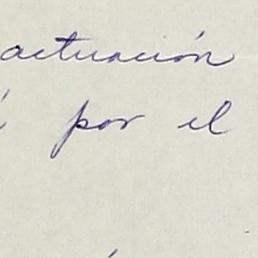 actuación
por el